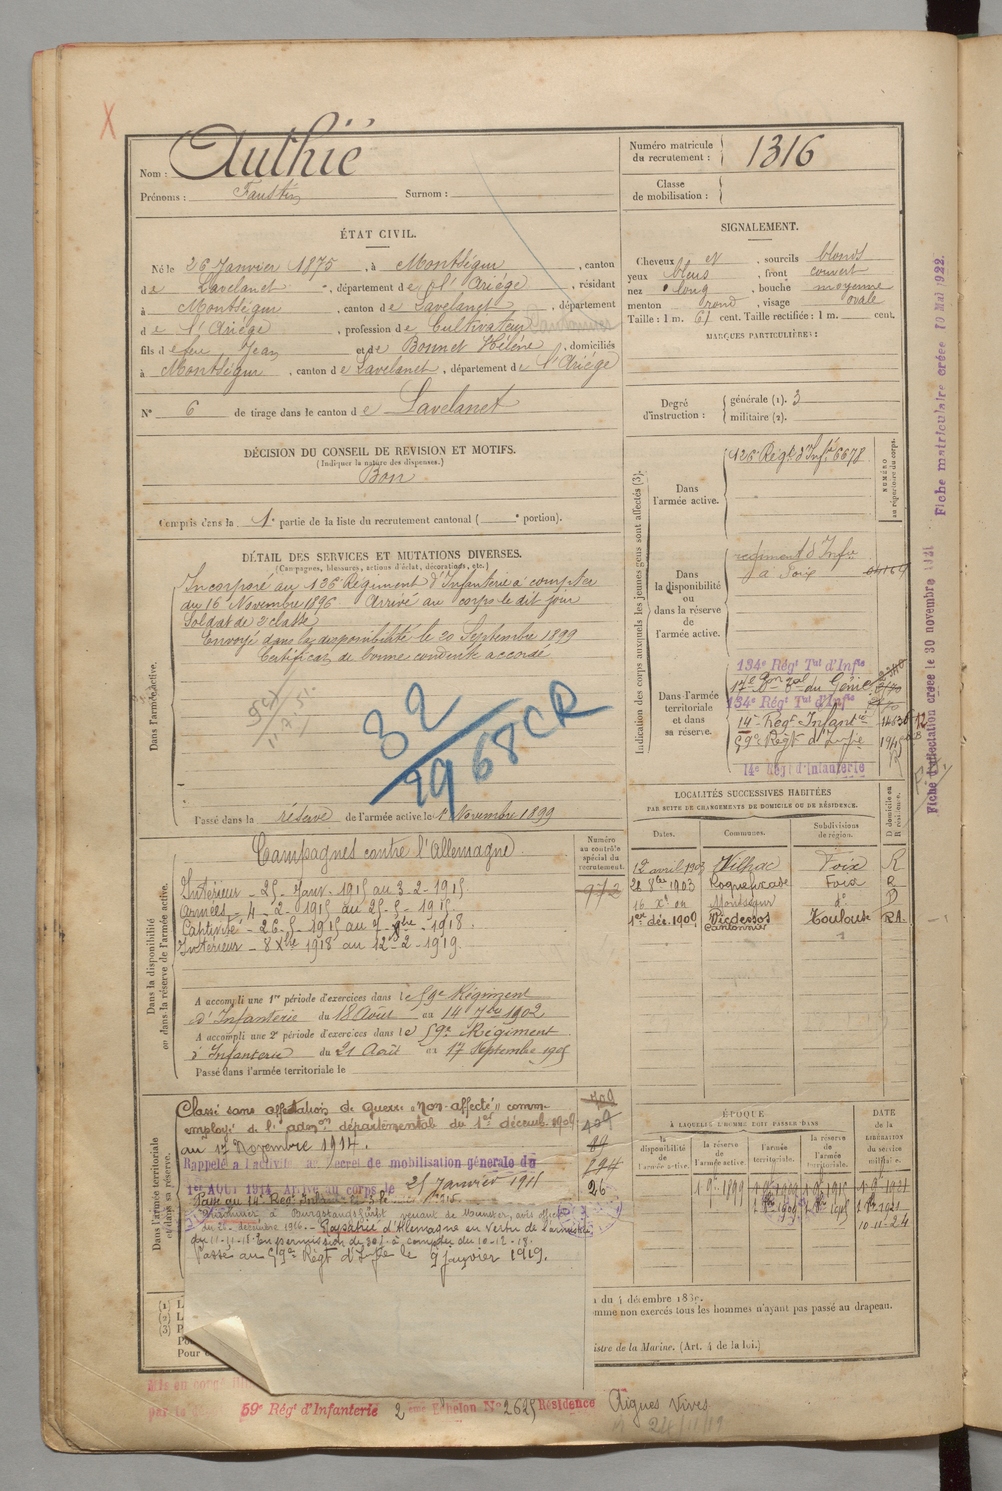 Nom : Authié
Prénoms : Faustin Surnom :
Numéro matricule du recrutement : 1316
Classe de mobilisation :
ÉTAT CIVIL.
Né le 26 Janvier 1875, à Montségur, canton
de Lavelanet, département de l'Ariége, résidant
à Montségur, canton de Lavelanet, département
de l'Ariége, profession de Cultivateur
fils de feu Jean et de Bonnet Hélène, domiciliés
à Montségur, canton de Lavelanet, département de l'Ariége
N° 6 de tirage dans le canton de Lavelanet
SIGNALEMENT.
Cheveux et, sourcils blonds
yeux bleus, front couvert
nez long, bouche moyenne
menton rond, visage ovale
Taille : 1 m. 61 cent. Taille rectifiée : 1 m. cent.
MARQUES PARTICULIÈRES :
Degré d'instruction : générale (1). 3
militaire (2).
DÉCISION DU CONSEIL DE REVISION ET MOTIFS.
(Indiquer la nature des dispenses.)
Bon
Compris dans la 1e partie de la liste du recrutement cantonal ( e portion).
DÉTAIL DES SERVICES ET MUTATIONS DIVERSES.
(Campagnes, blessures, actions d'éclat, décorations, etc.)
Dans l'armée active.
Incorporé au 126 Régiment d'Infanterie à compter
du 16 Novembre 1896. Arrivé au corps le dit jour
Soldat de 2e classe
Envoyé dans la disponibilité le 20 Septembre 1899
Certificat de bonne conduite accordé
32
2968 CR
Passé dans la réserve de l'armée active le 1er Novembre 1899
Indication des corps auxquels les jeunes gens sont affectés (3).
NUMÉRO au répertoire du corps.
Dans l'armée active.
126e Régt d'Infie 6678
Dans la disponibilité ou dans la réserve de l'armée active.
régiment d'Infie
à Foix
Dans l'armée territoriale et dans sa réserve.
134e Régt Tal d'Infie
134e Régt Tal d'Infie
14e Régt Infanie
59e Régt d'Infie
14e Régt d'Infanterie
LOCALITÉS SUCCESSIVES HABITÉES
PAR SUITE DE CHANGEMENTS DE DOMICILE OU DE RÉSIDENCE.
D domicile ou R résidence.
Dates. Communes. Subdivisions de région.
12 avril 1903 Vilhac Foix R
21 8bre 1903 Roquefixade Foix R
Montségur do D
1er déc. 1909 Vicdessos Toulouse RA
Cantonnier
Dans la disponibilité ou dans la réserve de l'armée active.
Numéro au contrôle spécial du recrutement.
972
Campagnes contre l'Allemagne
Intérieur - 25 Janv. 1915 au 3-2-1915
Armées - 4-2-1915 au 25-5-1915
Captivité - 26-5-1915 au 7 Xbre 1918.
Intérieur - 8 Xbre 1918 au 12-2-1919.
A accompli une 1re période d'exercices dans le 59e Régiment
d'Infanterie du 18 Août au 14 7bre 1902
A accompli une 2e période d'exercices dans le 59e Régiment
d'Infanterie du 21 Août au 17 Septembre 1905
Passé dans l'armée territoriale le
Dans l'armée territoriale et dans sa réserve.
Classé sans affectation de guerre "non-affecté" comme
employé de l'admon départementale du 1er décemb. 1909
au 17 Novembre 1914.
Rappelé à l'activité au décret de mobilisation générale du
1er AOUT 1914 Arrivé au corps le 25 janvier 1915
Passé au 14e Régt Infanie
Prisonnier à Burgsteinfurt venant de Munster, avis officiel
du 26 décembre 1916. - Rapatrié d'Allemagne en vertu de l'armistice
du 11-11-18. En permission de 30 j. à compter du 10-12-18.
Passé au 59e Régt d'Infie le 9 janvier 1919.
26
ÉPOQUE
À LAQUELLE L'HOMME DOIT PASSER DANS
la disponibilité de l'armée active. la réserve de l'armée active. l'armée territoriale. la réserve de l'armée territoriale.
DATE DE LA LIBÉRATION du service militaire.
10-11-24
du 4 décembre 1889.
omme non exercés tous les hommes n'ayant pas passé au drapeau.
istre de la Marine. (Art. 4 de la loi.)
(1) L
(2) L
(3) P
Po
Pour
Mis en congé
59e Régt d'Infanterie 2ème Echelon N° 2625 Résidence Aigues Vives
24/11/19
Fiche d'affectation créée le 30 novembre 1921
Fiche matriculaire créée 10 Mai 1922.